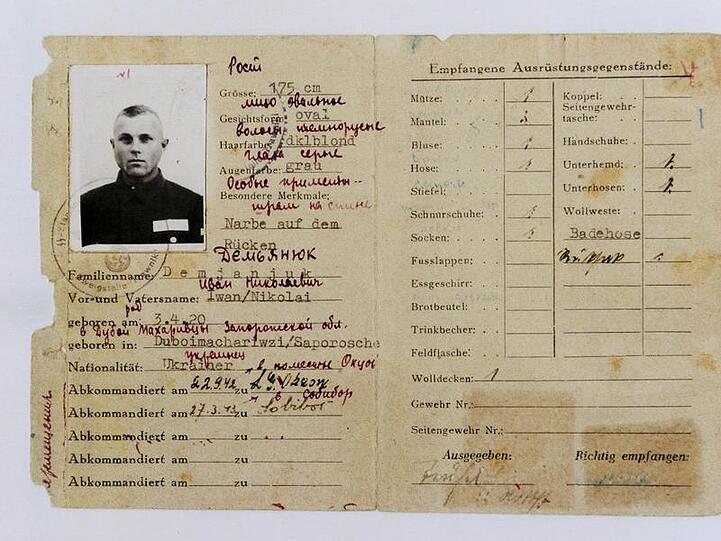 Рост
Grösse: 175 cm
лицо овальное
Gesichtsform: oval
волосы темнорусые
Haarfarbe: dklblond
глаза серые
Augenfarbe: grau
Особые приметы--
Besondere Merkmale:
шрам на спине
Narbe auf dem
Rücken
ДЕМЬЯНЮК
Familienname: Demjanjuk
Иван Николаевич
Vor-und Vatersname: Iwan/Nikolai
род
geboren am: 3.4.20
в Дубой Махаривцы Запорожской обл.
geboren in: Duboimachariwzi/Saporosche
украинец
Nationalität: Ukrainer
в поместье Окзов
Abkommandiert am 22.9.42 zu L.G. Okzow
в Собибор
Abkommandiert am 27.3.43 zu Sobibor
Abkommandiert am zu
Abkommandiert am zu
Abkommandiert am zu
Empfangene Ausrüstungsgegenstände:
Mütze: 1
Mantel:
Bluse: 1
Hose:
Stiefel:
Schnürschuhe:
Socken:
Fusslappen:
Essgeschirr:
Brotbeutel:
Trinkbecher:
Feldflasche:
Wolldecken: 1
Gewehr Nr.:
Seitengewehr Nr.:
Koppel:
Seitengewehr-
tasche:
Handschuhe:
Unterhemd: 1.
Unterhosen: 1.
Wollweste:
Badehose
Ausgegeben: Richtig empfangen: